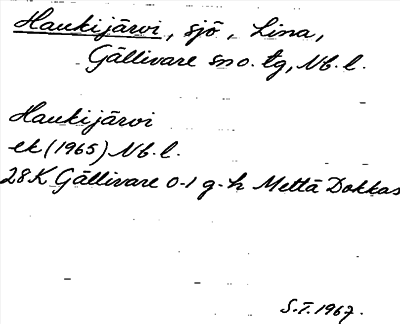 Haukijärvi, sjö, Lina,
Gällivare sno. tg, Nb. l.
Haukijärvi
ek (1965) Nb. l.
28K Gällivare 0-1 g-h Mettä Dokkas
S.T. 1967.